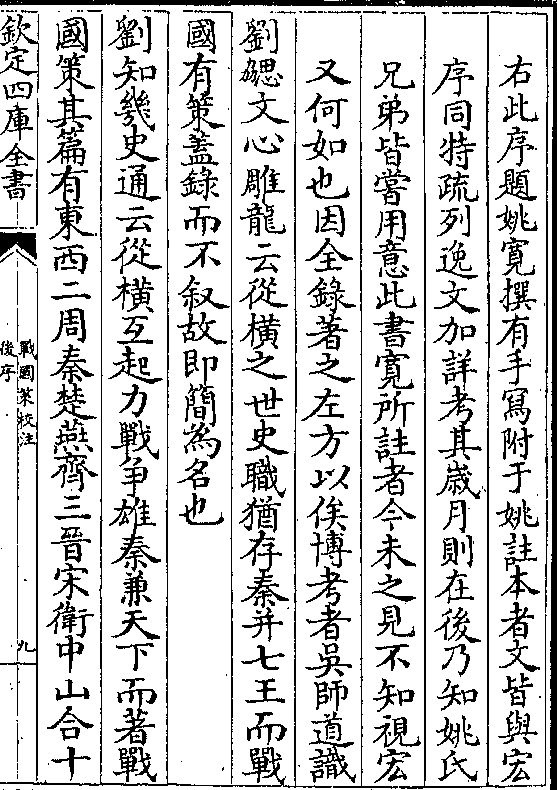 右此序題姚寛撰有手冩附于姚註本者文皆與宏
序同特疏列逸文加詳考其歳月則在後乃知姚氏
兄弟皆嘗用意此書寛所註者今未之見不知視宏
又何如也因全錄著之左方以俟博考者吳師道識
劉勰文心雕龍云從横之世史職猶存秦并七王而戰
國有策蓋錄而不叙故即簡為名也
劉知幾史通云從橫互起力戰争雄秦兼天下而著戰
國策其篇有東西二周秦楚燕齊三晉宋衛中山合十
欽定四庫全書
戰國策校注
後序
九